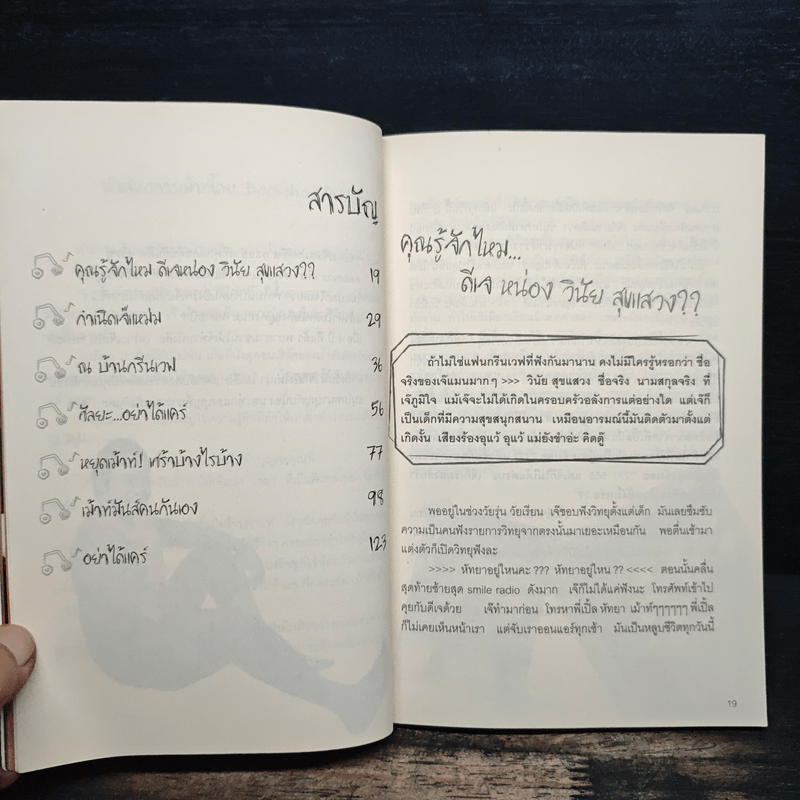 สารบัญ
คุณรู้จักไหม ดีเจหน่อง วินัย สุขแสวง?? 19
กำเนิดเจ๊แหม่ม 29
ณ บ้านกรีนเวฟ 36
กัลยะ...อย่าได้แคร์ 56
หยุดเม้าท์! ดราม่าบ้างไรบ้าง 77
เม้าท์มันส์คนกันเอง 98
อย่าได้แคร์ 123
คุณรู้จักไหม...
ดีเจ หน่อง วินัย สุขแสวง??
ถ้าไม่ใช่แฟนกรีนเวฟที่ฟังกันมานาน คงไม่มีใครรู้หรอกว่า ชื่อ
จริงของเจ๊แมนมากๆ >>> วินัย สุขแสวง ชื่อจริง นามสกุลจริง ที่
เจ๊ภูมิใจ แม้เจ๊จะไม่ได้เกิดในครอบครัวอลังการแต่อย่างใด แต่เจ๊ก็
เป็นเด็กที่มีความสุขสนุกสนาน เหมือนอารมณ์นี้มันติดตัวมาตั้งแต่
เกิดงั้น เสียงร้องอุแว้ อุแว้ แม่ยังขำอ่ะ คิดดู๊
พออยู่ในช่วงวัยรุ่น วัยเรียน เจ๊ชอบฟังวิทยุตั้งแต่เด็ก มันเลยซึมซับ
ความเป็นคนฟังรายการวิทยุจากตรงนั้นมาเยอะเหมือนกัน พอตื่นเช้ามา
แต่งตัวก็เปิดวิทยุฟังละ
>>>> หัทยาอยู่ไหนคะ ??? หัทยาอยู่ไหน ?? <<<< ตอนนั้นคลื่น
สุดท้ายซ้ายสุด smile radio ดังมาก เจ๊ก็ไม่ได้แค่ฟังนะ โทรศัพท์เข้าไป
คุยกับดีเจด้วย เจ๊ทำมาก่อน โทรหาพี่เปิ้ล หัทยา เม้าท์ๆๆๆๆๆๆ พี่เปิ้ล
ก็ไม่เคยเห็นหน้าเรา แต่จับเราออนแอร์ทุกเช้า มันเป็นหลูบชีวิตทุกวันนี้
19